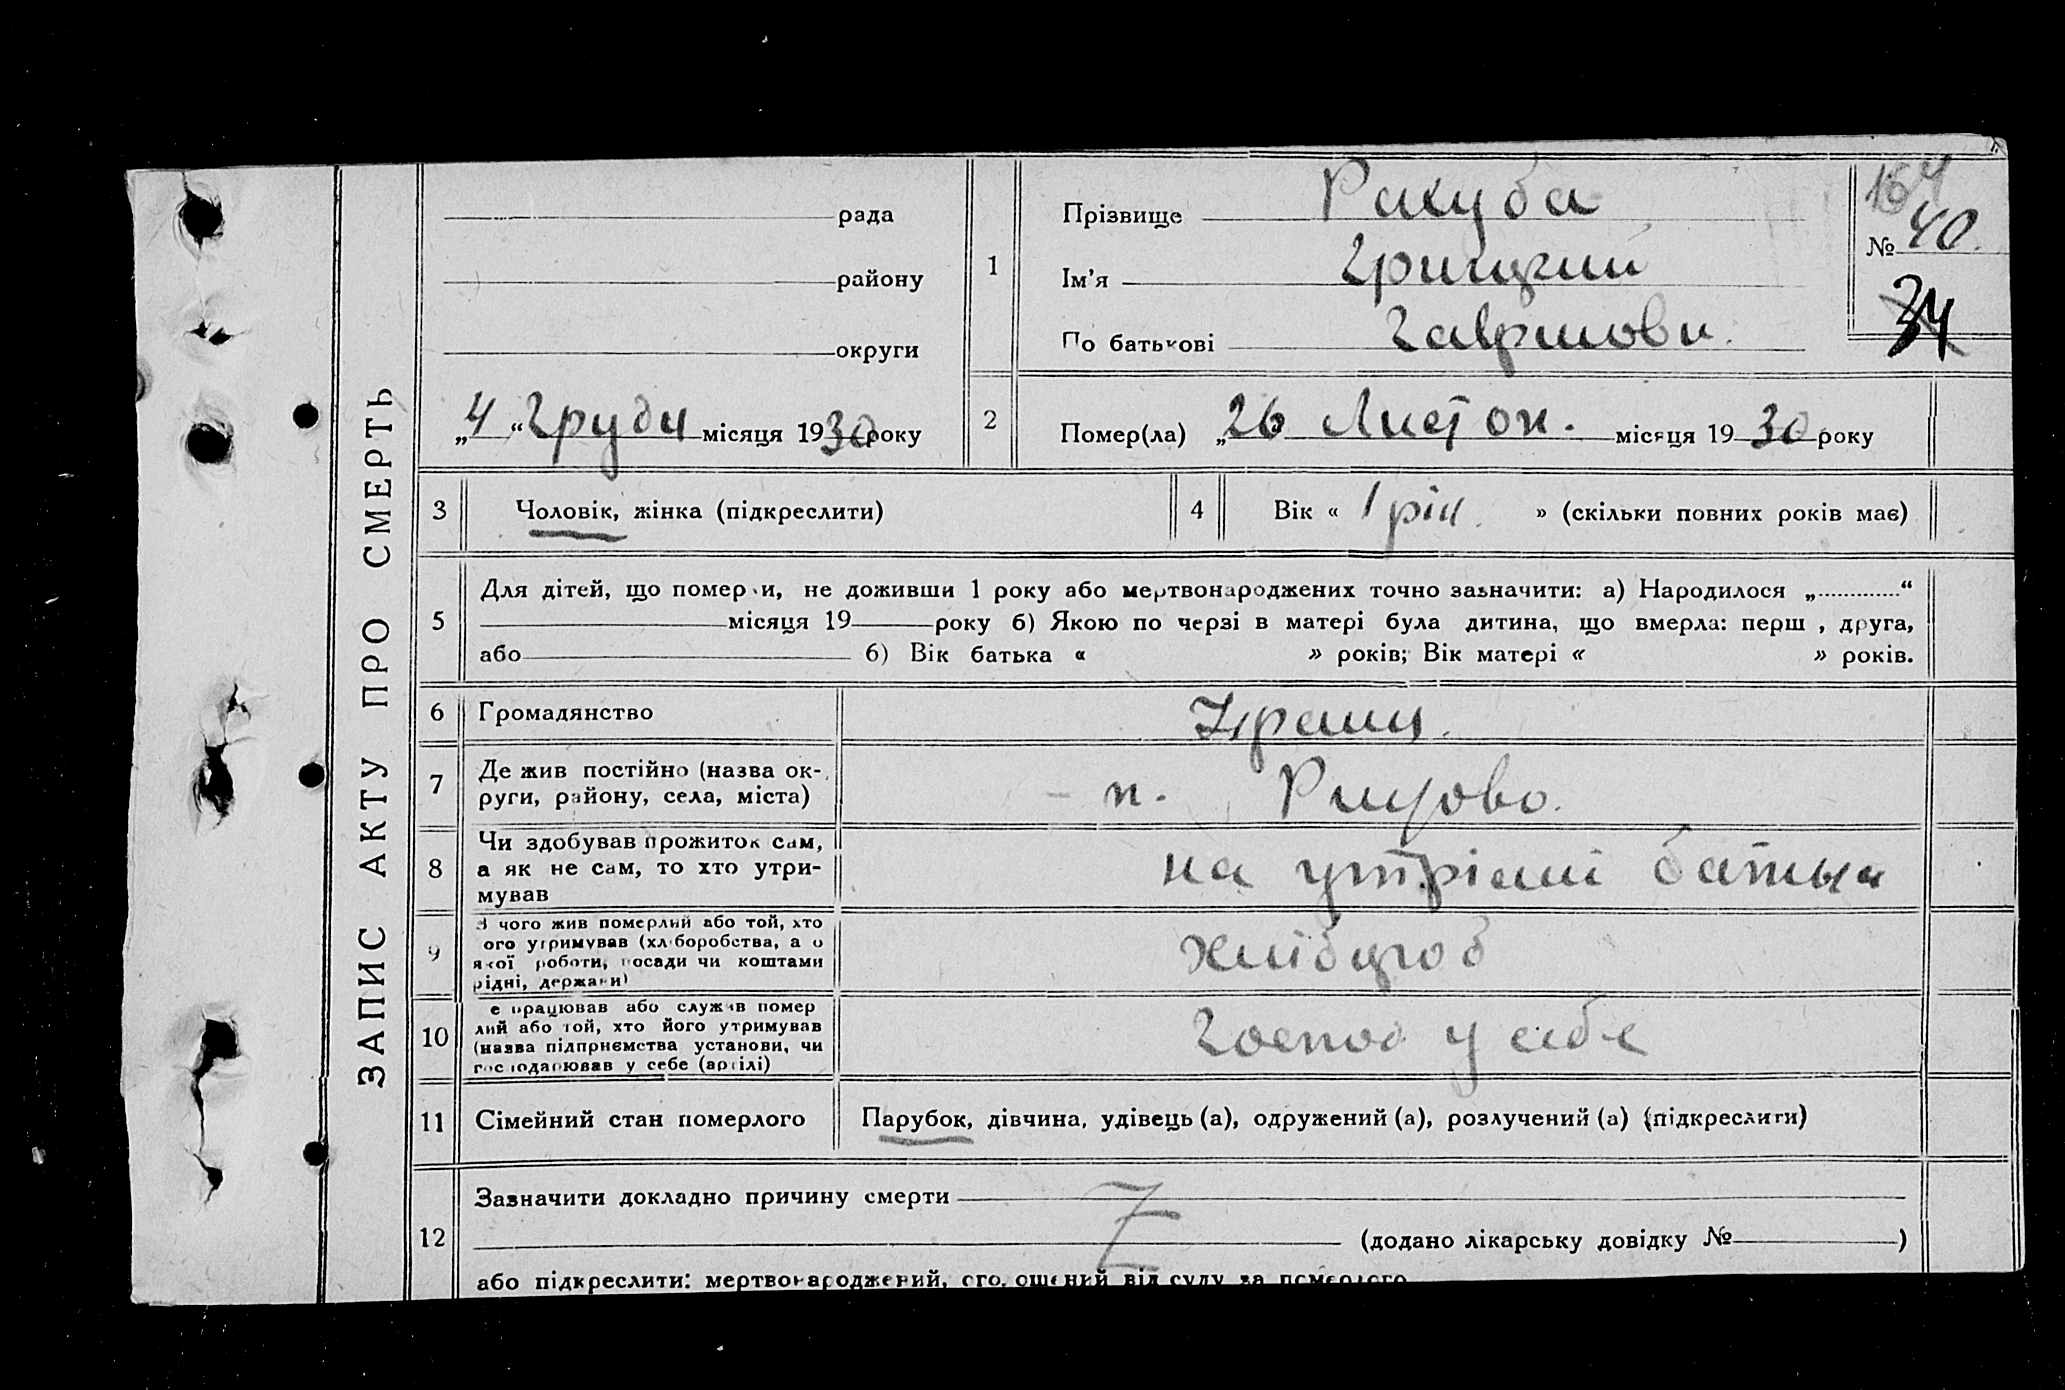 ЗАПИС АКТУ ПРО СМЕРТЬ
рада
району
округи
„4“ Грудн місяця 1930 року
1
Прізвище Ракуба
Ім’я Грицький
По батькові Гаврилови.
164
№ 40.
34
2
Помер(ла) „26 Листоп. місяця 1930 року
3
Чоловік, жінка (підкреслити)
4
Вік « 1 рік. » (скільки повних років має)
5
Для дітей, що померли, не доживши 1 року або мертвонароджених точно зазначити: а) Народилося „.............“
місяця 19 року б) Якою по черзі в матері була дитина, що вмерла: перш , друга,
або б) Вік батька « » років; Вік матері « » років.
6
Громадянство
Украц.
7
Де жив постійно (назва ок-
руги, району, села, міста)
8
Чи здобував прожиток сам,
а як не сам, то хто утри-
мував
на утрімні батька
9
З чого жив померлий або той, хто
ого утримував (хліборобства, а о
якої роботи, посади чи коштами
рідні, держави)
хлібороб
10
е працював або служив помер
лий або той, хто його утримував
(назва підприємства установи, чи
господарював у себе (артілі)
Господ у себе
11
Сімейний стан померлого
Парубок, дівчина, удівець (а), одружений (а), розлучений (а) (підкреслити)
12
Зазначити докладно причину смерти
(додано лікарську довідку № )
або підкреслити: мертвонароджений, оголошений від суду за померлого